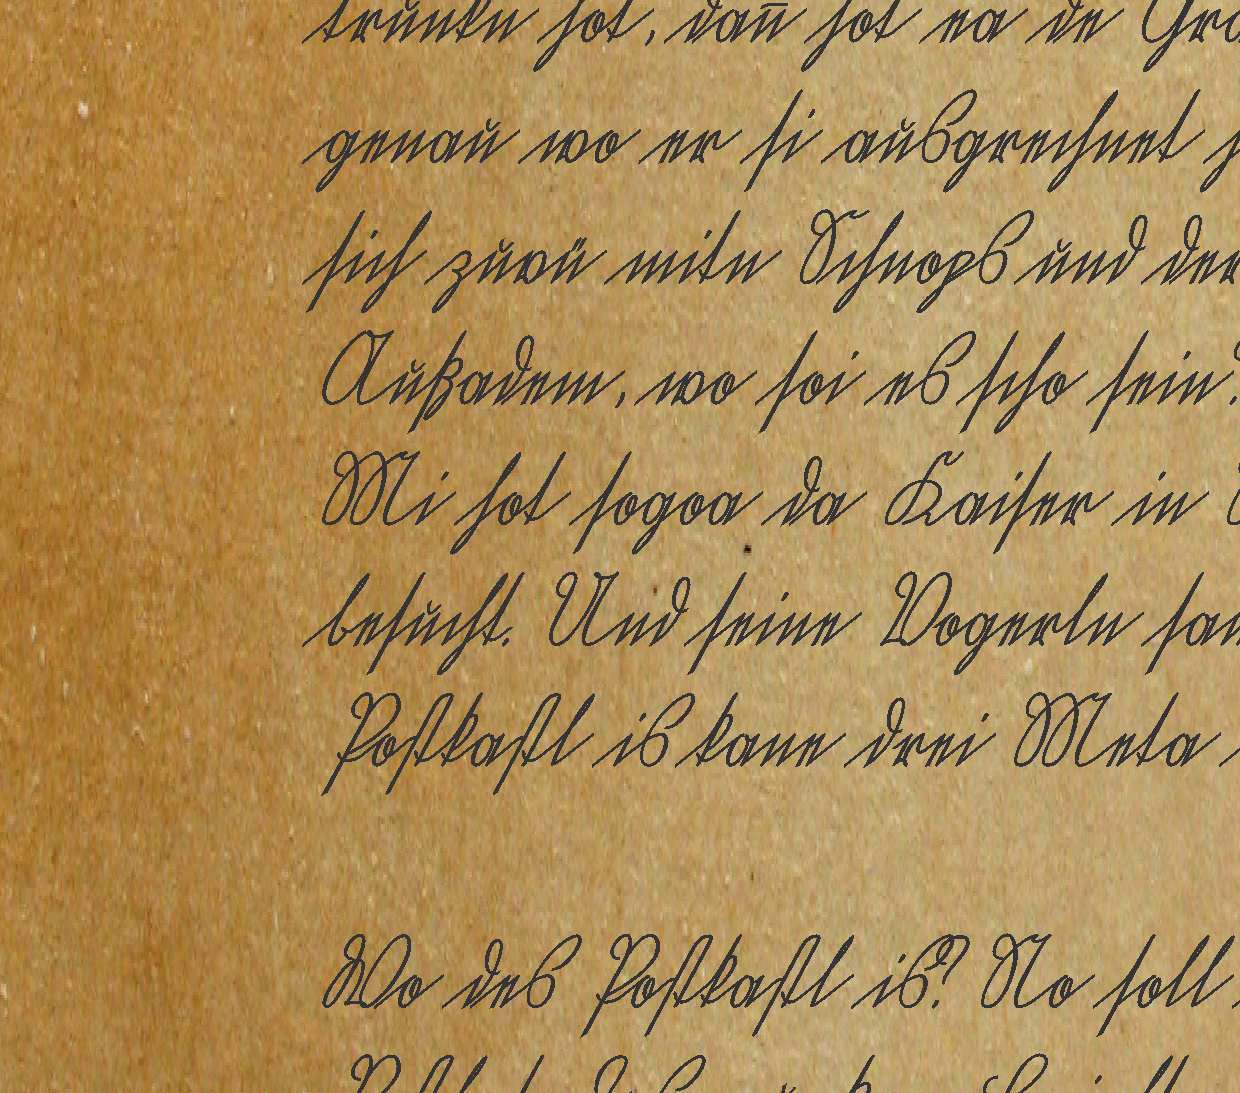 trunkn hot, dañ hot ea de
genau wo er hi ausgrechnet
sich zuvü mitn Schnops und der
Außadem, wo soi es scho sein?
Mi hot sogoa da Kaiser in
besucht. Und seine Vogerln san
Postkastl is kane drei Meta
Wo des Postkastl is? No soll